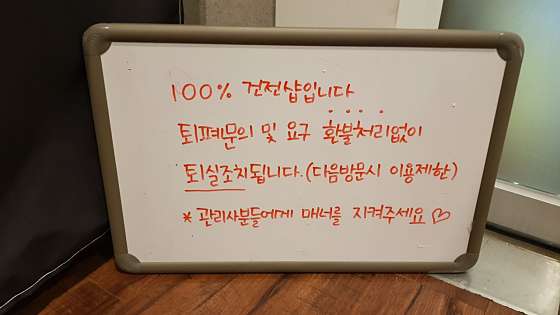 100% 건전샵입니다
퇴폐문의 및 요구 환불처리없이
퇴실조치됩니다.(다음방문시 이용제한)
*관리사분들에게 매너를 지켜주세요♡